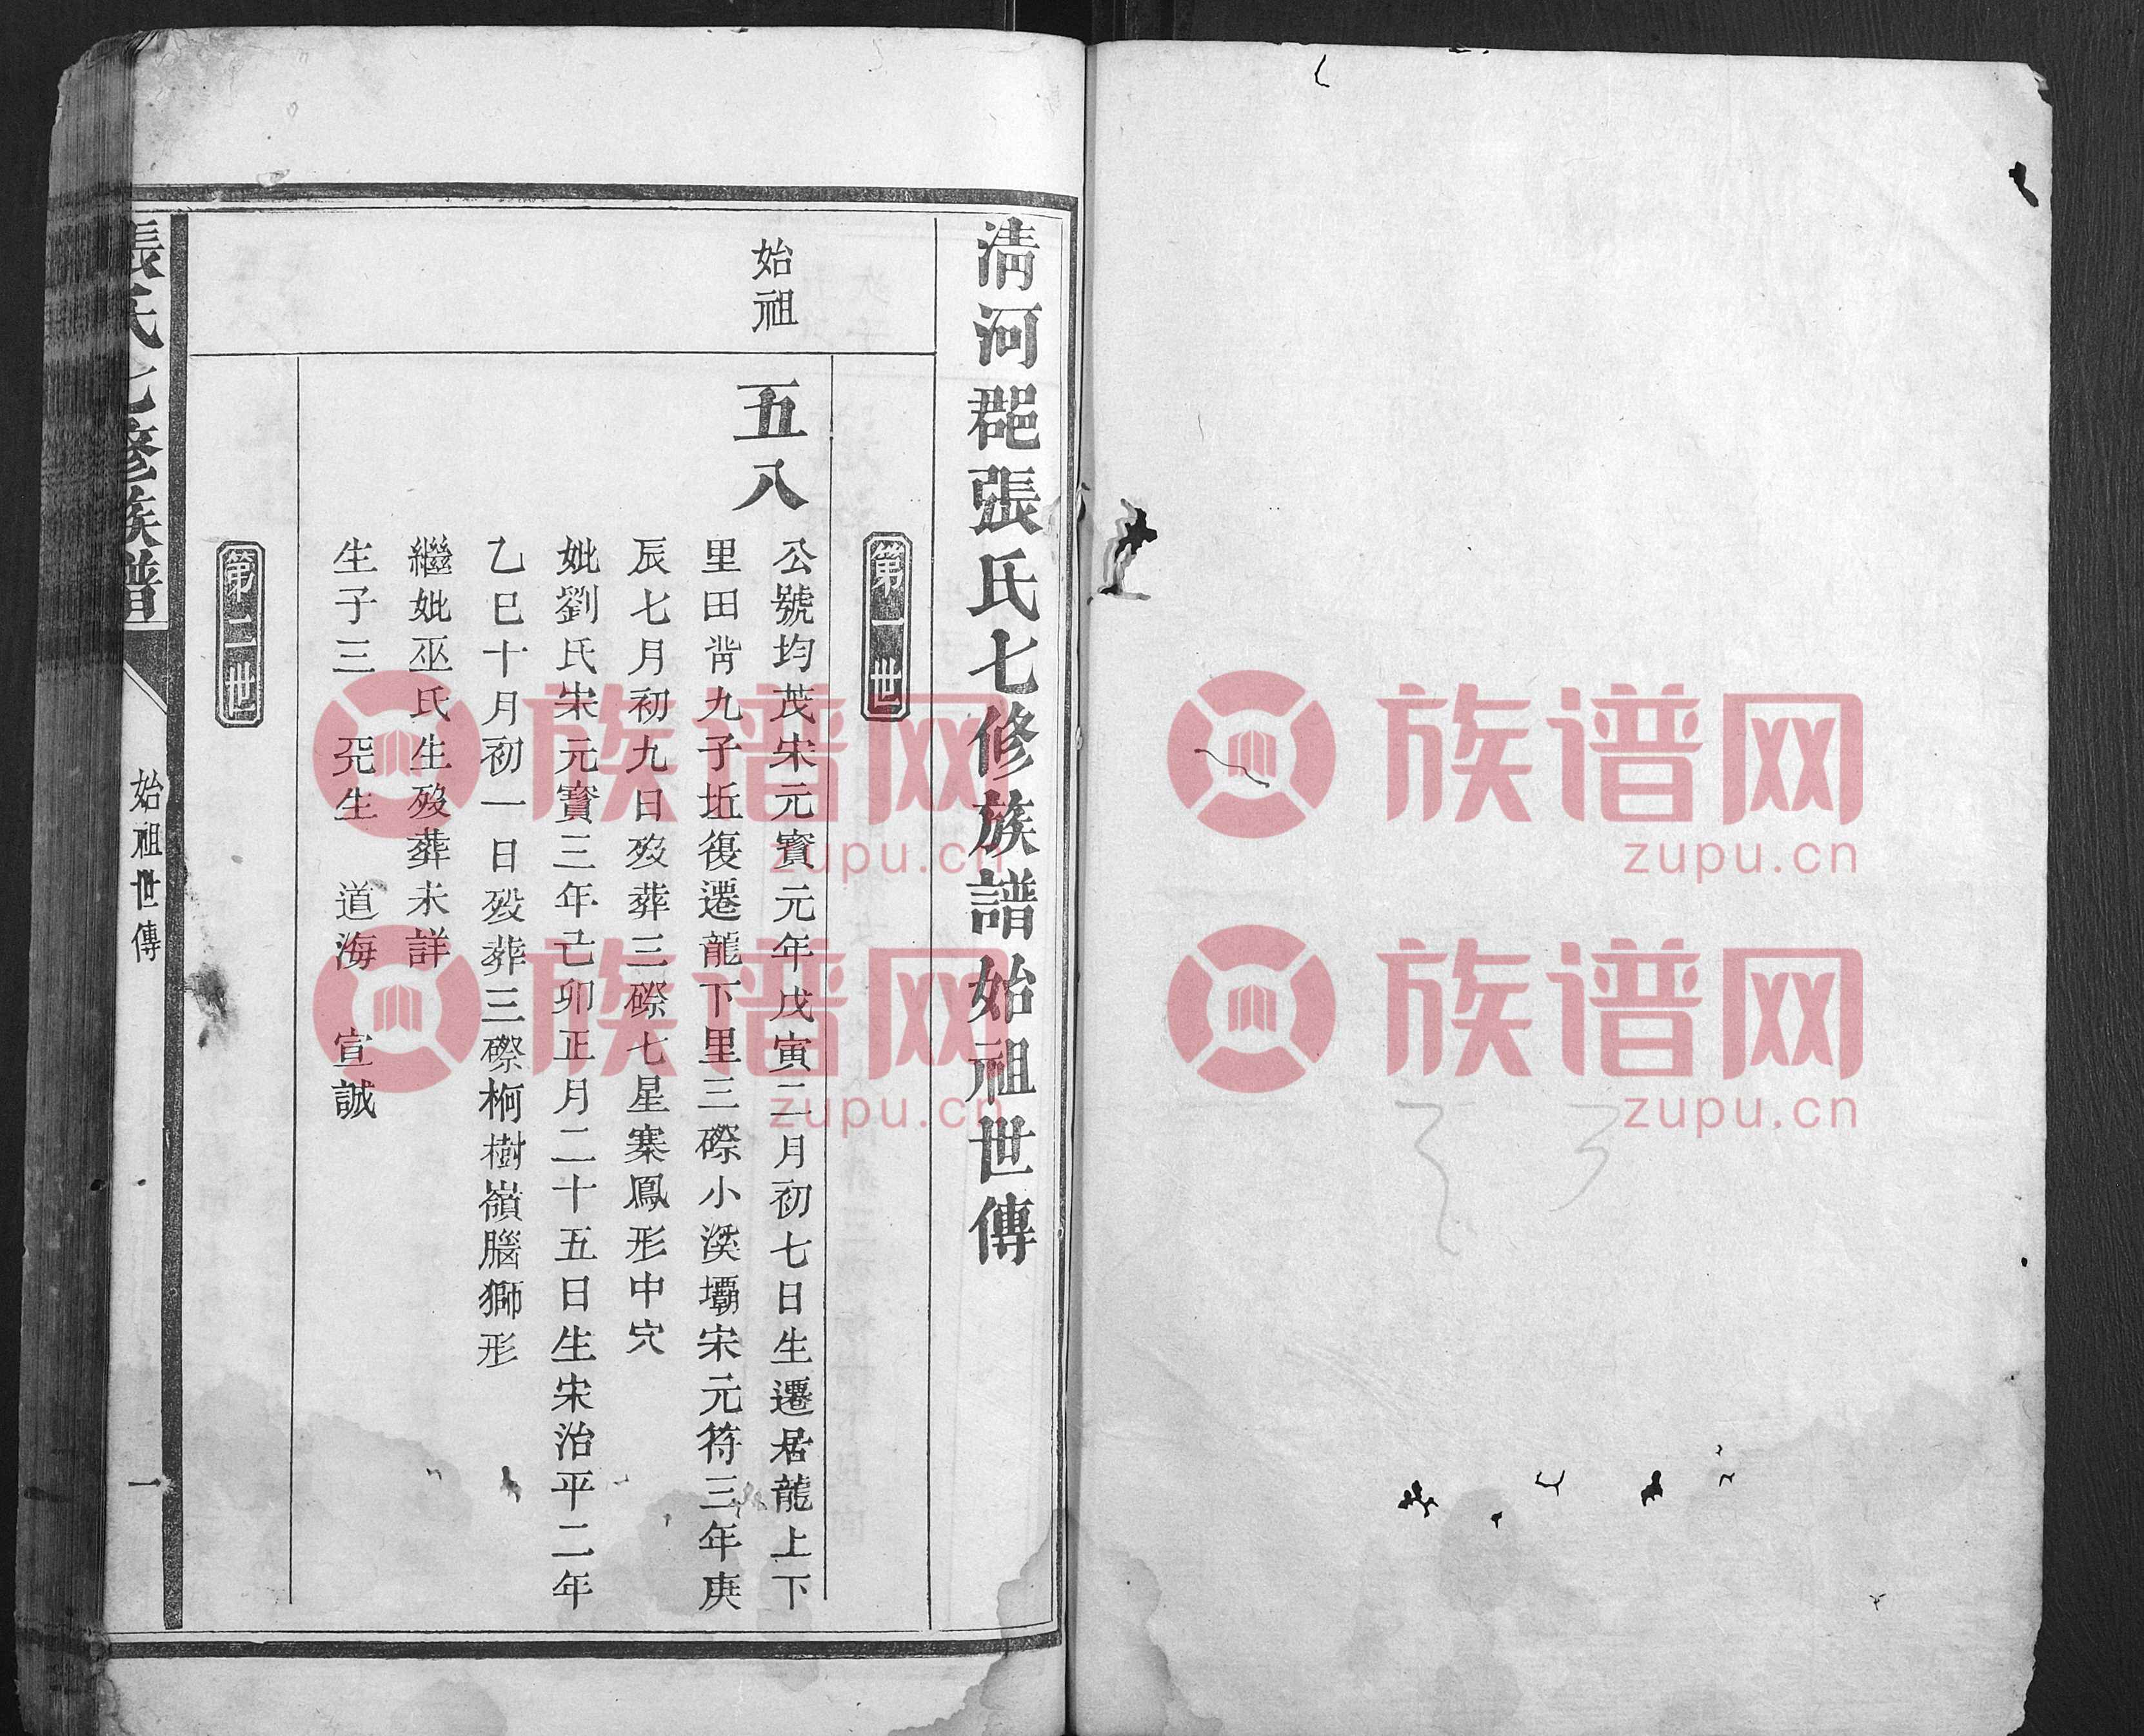 清河郡張氏七修族譜始祖世傳
第一世
始祖
五八
公號均茂宋元寳元年戊寅二月初七日生遷居龍上下
里田背九子坵復遷龍下里三磜小溪壩宋元符三年庚
辰七月初九日歿葬三磜七星寨鳳形中穴
妣劉氏宋元寳三年己卯正月二十五日生宋治平二年
乙巳十月初一日歿葬三磜桐樹嶺腦獅形
繼妣巫氏生歿葬未詳
生子三 堯生 道海 宣誠
第二世
張氏七修族譜
始祖世傳
一
族谱网
zupu.cn
族谱网
zupu.cn
族谱网
zupu.cn
族谱网
zupu.cn